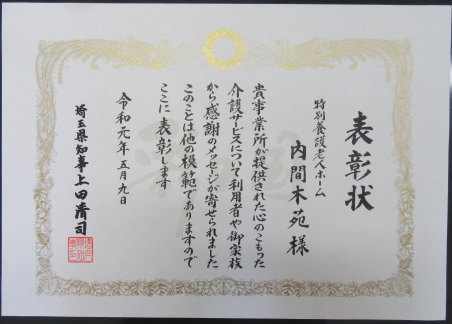 表彰状
特別養護老人ホーム
内間木苑様
貴事業所が提供された心のこもった
介護サービスについて利用者や御家族
から感謝のメッセージが寄せられました
このことは他の模範でありますので
ここに表彰します
令和元年五月九日
埼玉県知事上田清司